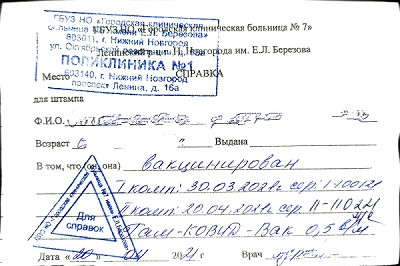 ГБУЗ НО «Городская клиническая
больница №7 имени Е.Л. Березова»
603011, г. Нижний Новгород
ул. Октябрьской революции,
ПОЛИКЛИНИКА №1
603140, г. Нижний Новгород
проспект Ленина, д. 16а
ГБУЗ НО «Городская клиническая больница № 7»
Ленинский р-н г. Н. Новгорода им. Е.Л. Березова
Место
СПРАВКА
для штампа
Ф.И.О.
Возраст Выдана
В том, что (он она) вакцинирован
I комп: 30.03.2021г сер: I-100121
II комп: 20.04.2021г сер. II-
Гам-КОВИД-Вак 0,5 в/м
Для
справок
Дата «20» 04 2021 г Врач